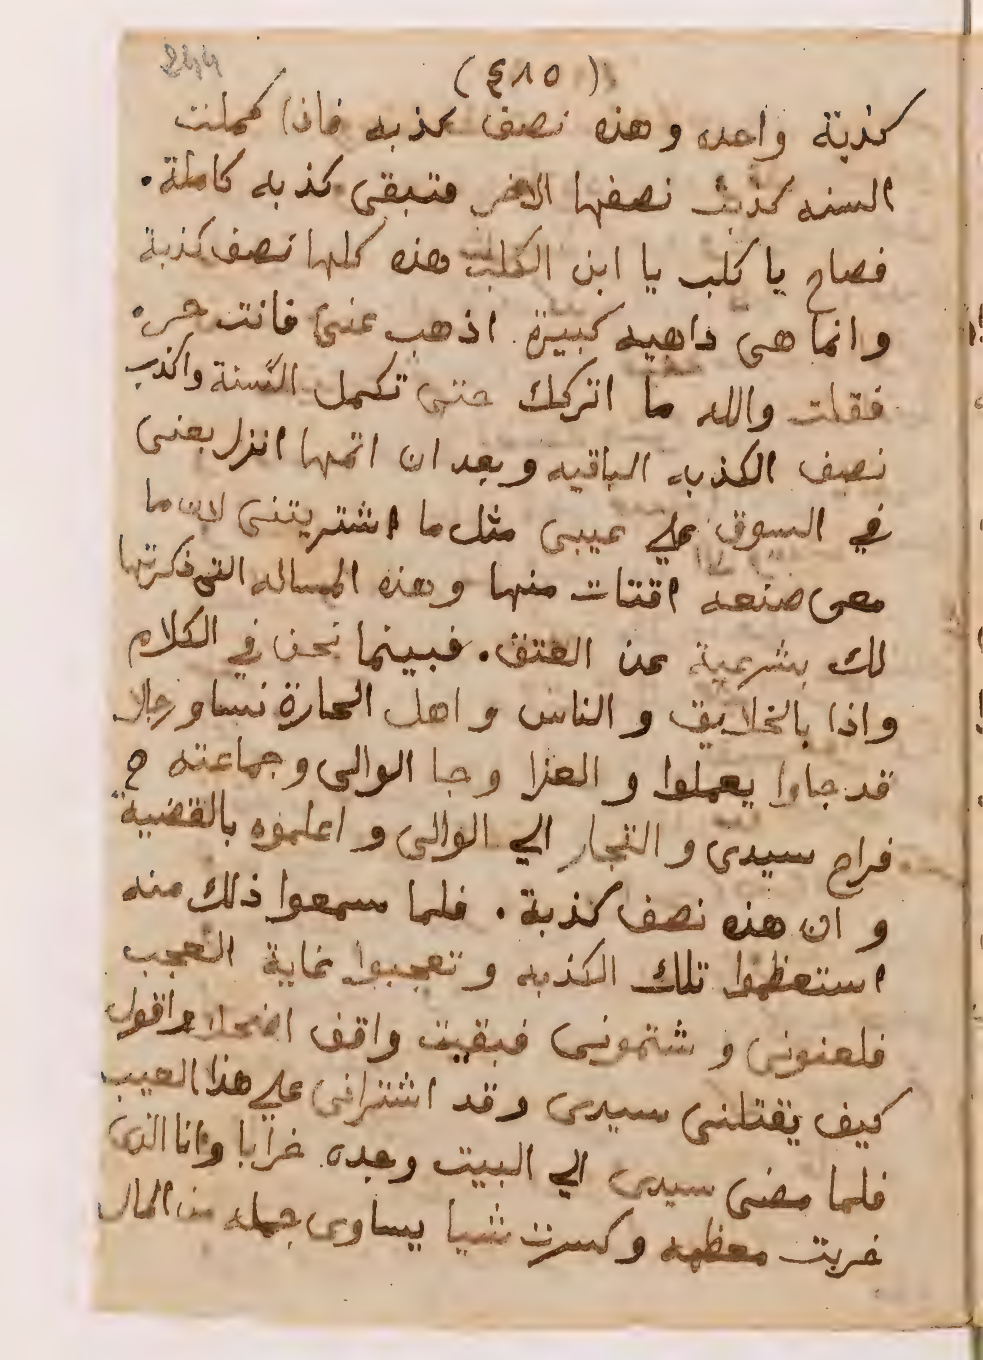 244
(٤٨٥)
كذبة واحده وهذه نصف كذبه فاذا كملت
السنه كذبت نصفها الاخر فتبقى كذبه كاملة.
فصاح يا كلب يا ابن الكلب هذه كلها نصف كذبة
وانما هى داهيه كبيرة. اذهب عنى فانت حر.
فقلت والله ما اتركك حتى تكمل السنة واكذب
نصف الكذبه الباقيه وبعد ان اتمها انزل بعنى
في السوق على عيبى مثل ما اشتريتنى لان ما
معى صنعه اقتات منها وهذه المساله التى ذكرتها
لك بشرعية عن العتق. فبينما نحن في الكلام
واذا بالخلايق والناس واهل الحارة نسا ورجال
قد جاوا يعملوا العزا وجا الوالى وجماعته
فراح سيدى والتجار الي الوالى واعلموه بالقضية
وان هذه نصف كذبة. فلما سمعوا ذلك منه
استعظموا تلك الكذبه وتعجبوا غاية التعجب
فلعنونى وشتمونى فبقيت واقف اضحك واقول
كيف يقتلنى سيدى وقد اشترانى على هذا العيب
فلما مضى سيدى الي البيت وجده خرابا وانا الذى
خربت معظمه وكسرت شيا يساوى جمله من المال